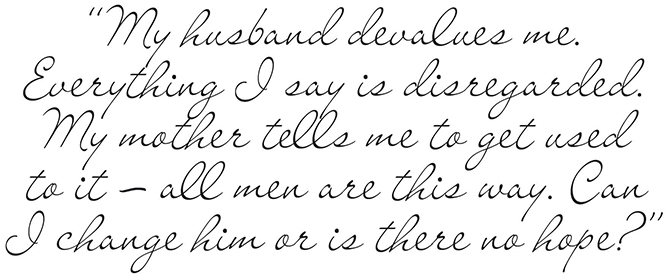 “My husband devalues me.
Everything I say is disregarded.
My mother tells me to get used
to it – all men are this way. Can
I change him or is there no hope?”